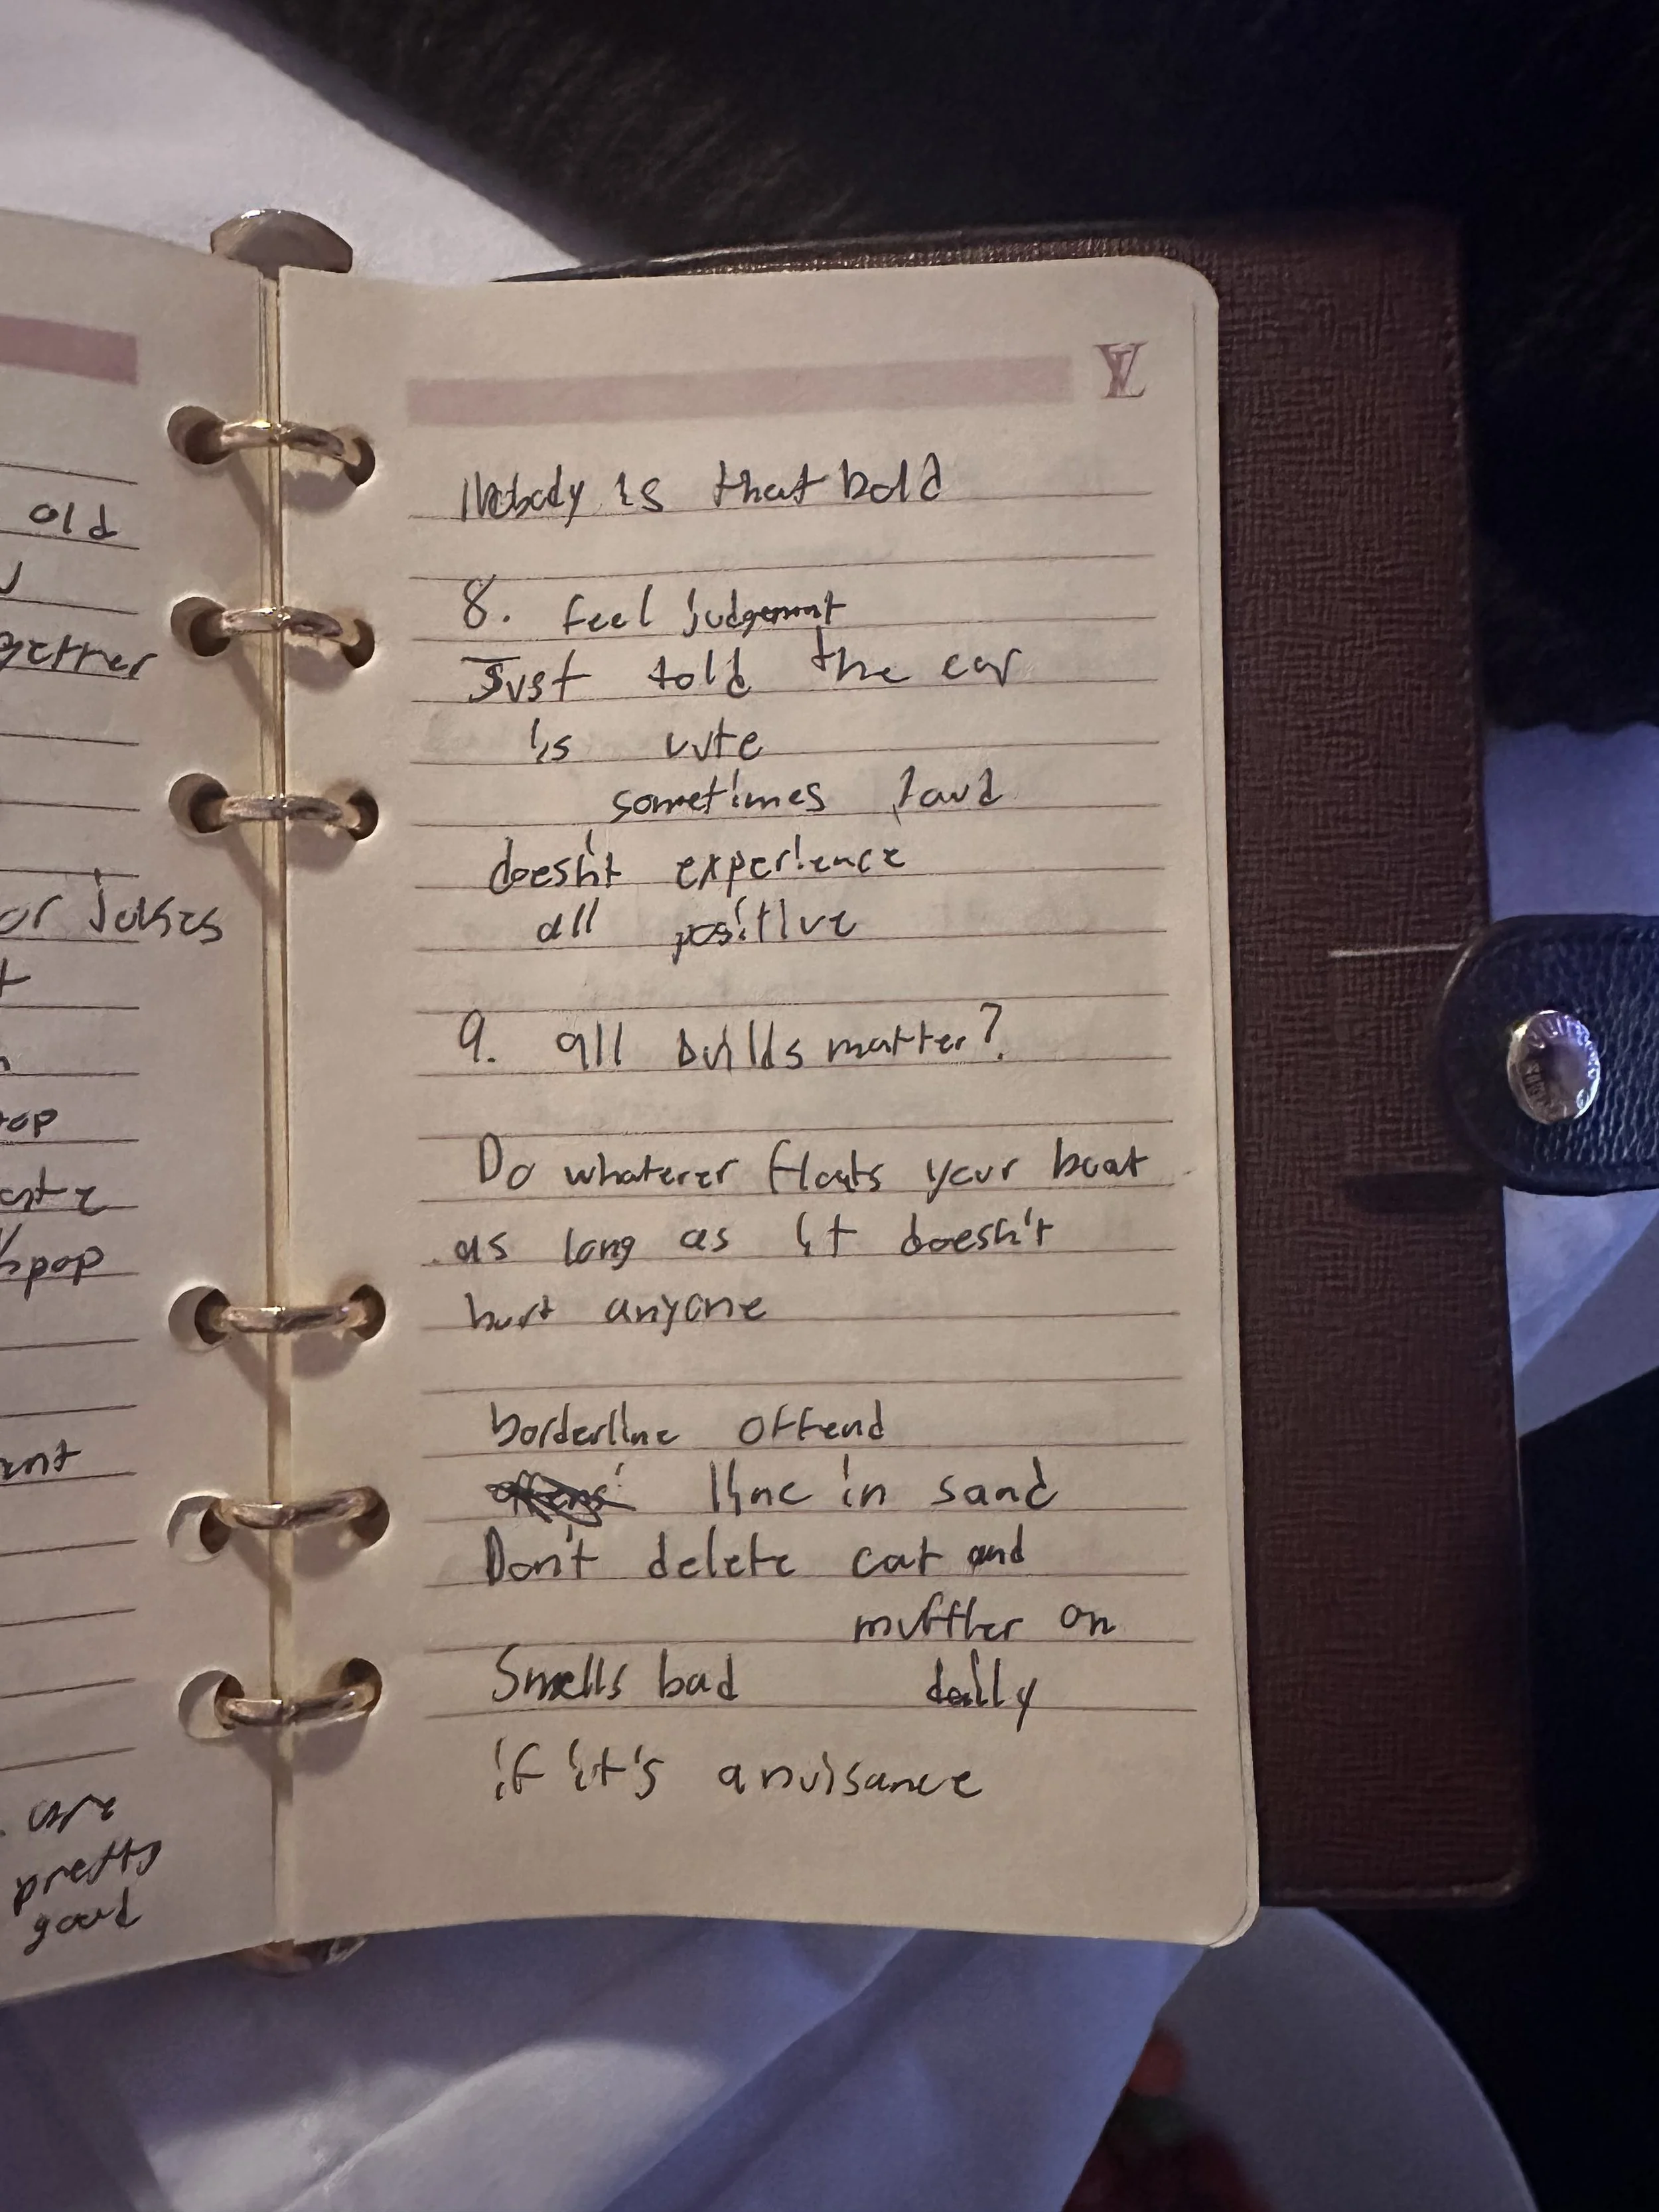 old
or jokes
kpop
pretty
good
LV
Nobody is that bold
8. feel judgement
Just told the car
is cute
sometimes loud
doesn't experience
all positive
9. all builds matter?
Do whatever floats your boat
as long as it doesn't
hurt anyone
borderline offend
line in sand
Don't delete cat and
muffler on
Smells bad daily
if it's a nuisance